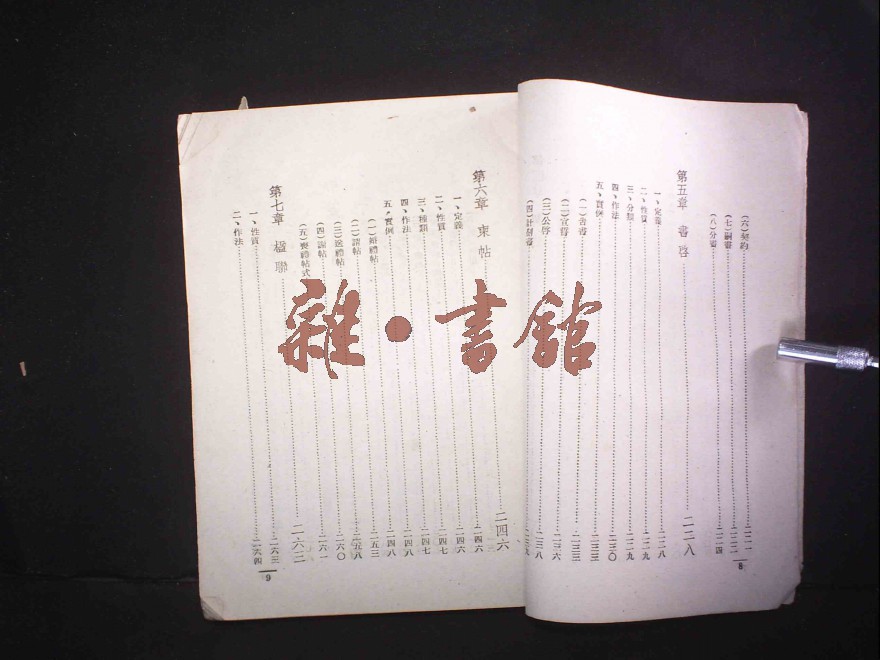 (六)契約……二二一
(七)嗣書……二二二
(八)分書……二二四
第五章 書啓……二二八
一、定義……二二八
二、性質……二二九
三、分類……二二九
四、作法……二三〇
五、實例……二三三
(一)告書……二三三
(二)宣言……二三六
(三)公啓……二三八
(四)計劃書
8
第六章 柬帖……二四六
一、定義……二四六
二、性質……二四七
三、種類……二四七
四、作法……二四八
五、實例……二四八
(一)婚禮帖……二五三
(二)請帖……二五八
(三)送禮帖……二六〇
(四)謝帖……二六一
(五)喪禮帖式
第七章 楹聯……二六三
一、性質……二六三
二、作法……二六四
9
雜·書館